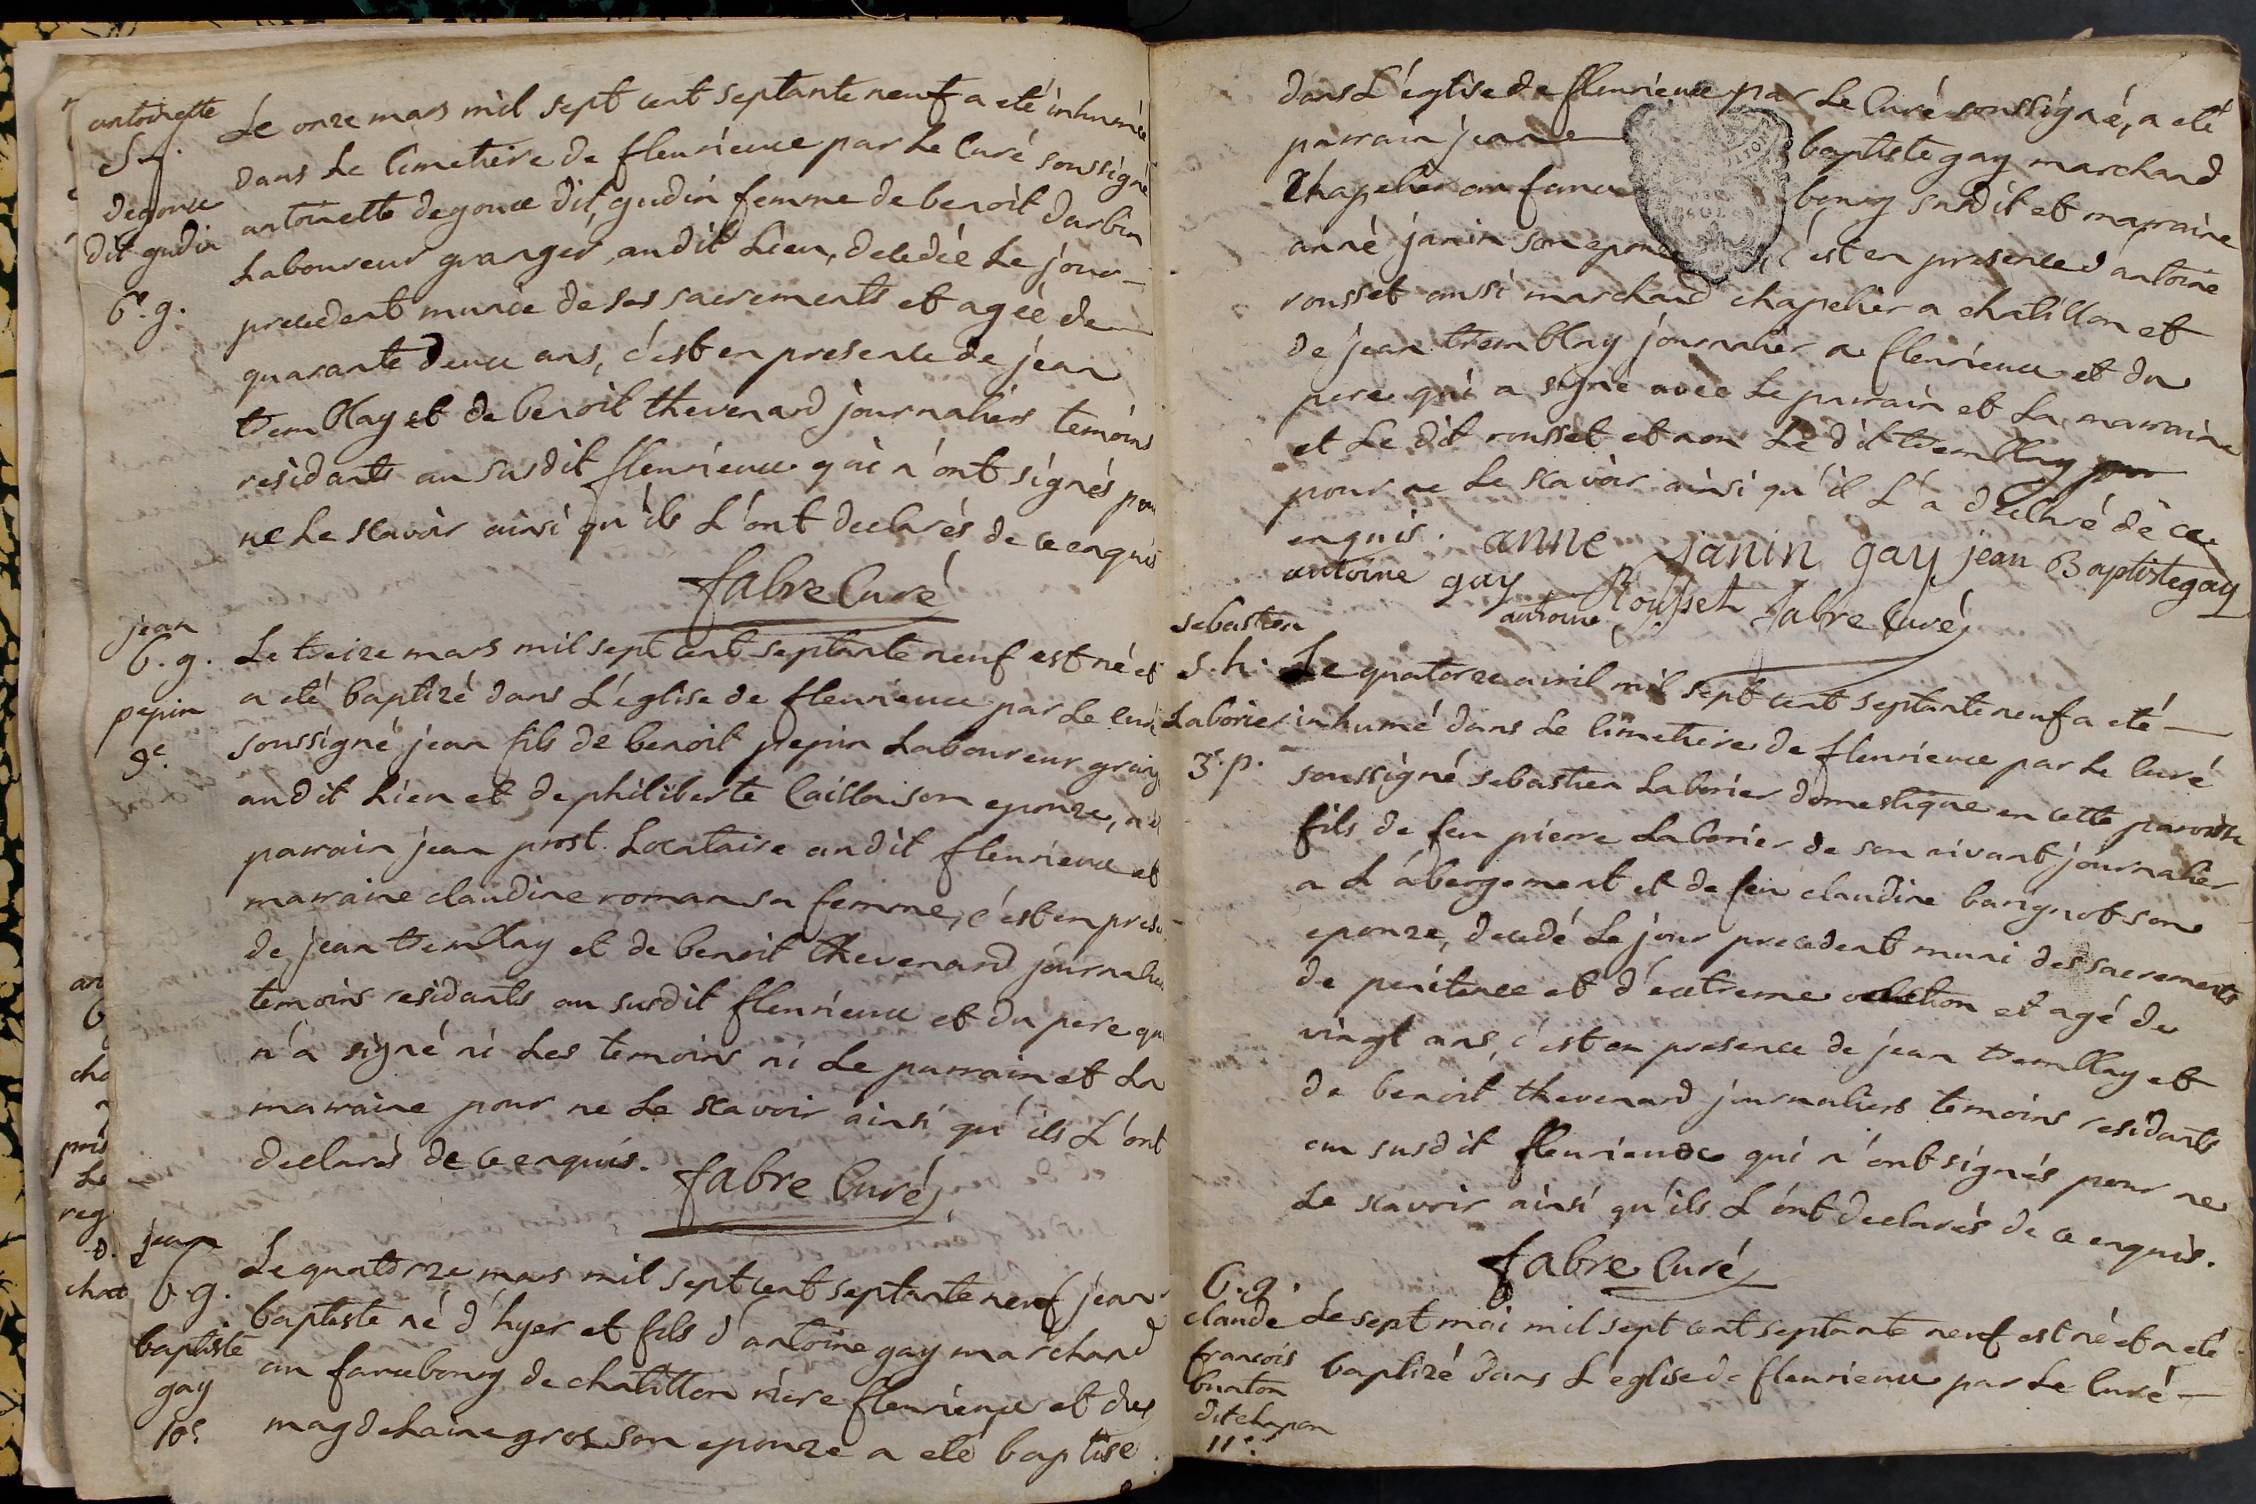 antoinette
S. f.
degouce
dit gudin
6e. g.
Le onze mars mil sept cent septante neuf a eté inhumée
dans Le Cimetiere de fleurieux par Le Curé soussigné
antoinette degouce dit gudin femme de benoit darbon
Laboureur granger audit Lieu, decedée Le jour
precedent munie de ses sacrements et agée de
quarante deux ans, c'est en presence de jean
tremblay et de benoit thevenard journaliers temoins
residants au susdit fleurieux qui n'ont signés pour
ne Le scavoir ainsi qu'ils L'ont declarés de ce enquis
fabre Curé
jean
b. g.
pepin
9e.
Le treize mars mil sept cent septante neuf est né et
a eté baptizé dans L'église de fleurieux par Le curé
soussigné jean fils de benoit pepin Laboureur grang
audit Lieu et de philiberte Caillaison epouze, a e
parrain jean prost Locataire audit fleurieux et
marraine claudine roman sa femme, c'est en prese
de jean tremblay et de benoit thevenard journaliers
temoins residants au susdit fleurieux et du pere qui
n'a signé ni Les temoins ni Le parrain et La
marraine pour ne Le scavoir ainsi qu'ils L'ont
declarés de ce enquis.
fabre Curé
jean
b. g.
baptiste
gay
10e.
Le quatorze mars mil sept cent septante neuf jean
baptiste né d'hyer et fils d'antoine gay marchand
au fauxbourg de chatillon riere fleurieux et de
magdelaine gros son epouze a eté baptisé
dans L'église de fleurieux par Le Curé soussigné, a eté
parrain jean baptiste gay marchand
Chapelier au faux bourg susdit et marraine
anne janin son epouze c'est en presence d'antoine
rousset aussi marchand chapelier a chatillon et
de jean tremblay journalier a fleurieux et du
pere qui a signé avec Le parrain et La marraine
et Le dit rousset et non Le dit tremblay pour
pour ne Le scavoir ainsi qu'il L'a declaré de ce
enquis. anne janin gay jean Baptiste gay
antoine gay antoine Rousset fabre Curé
sebastien
S. h.
Laborier
3e. p.
Le quatorze avril mil sept cent septante neuf a eté
inhumé dans Le Cimetiere de fleurieux par Le Curé
soussigné sebastien Laborier domestique en cette paroisse
fils de feu pierre Laborier de son vivant journalier
a L'abergement et de feu claudine bangnot son
epouze, decedé Le jour precedent muni des sacrements
de penitence et d'extreme onction et agé de
vingt ans, c'est en presence de jean tremblay et
de benoit thevenard journaliers temoins residants
au susdit fleurieux qui n'ont signés pour ne
Le scavoir ainsi qu'ils L'ont declarés de ce enquis.
fabre Curé
b. g.
claude
francois
buaton
dit chapon
11e.
Le sept mai mil sept cent septante neuf est né et a eté
baptizé dans L'eglise de fleurieux par Le Curé